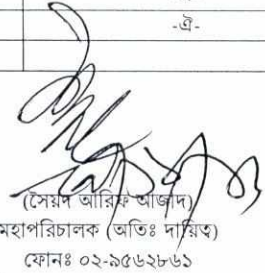 -ঐ-
(সৈয়দ আরিফ আজাদ)
মহাপরিচালক (অতিঃ দায়িত্ব)
ফোনঃ ০২-৯৫৬২৮৬১